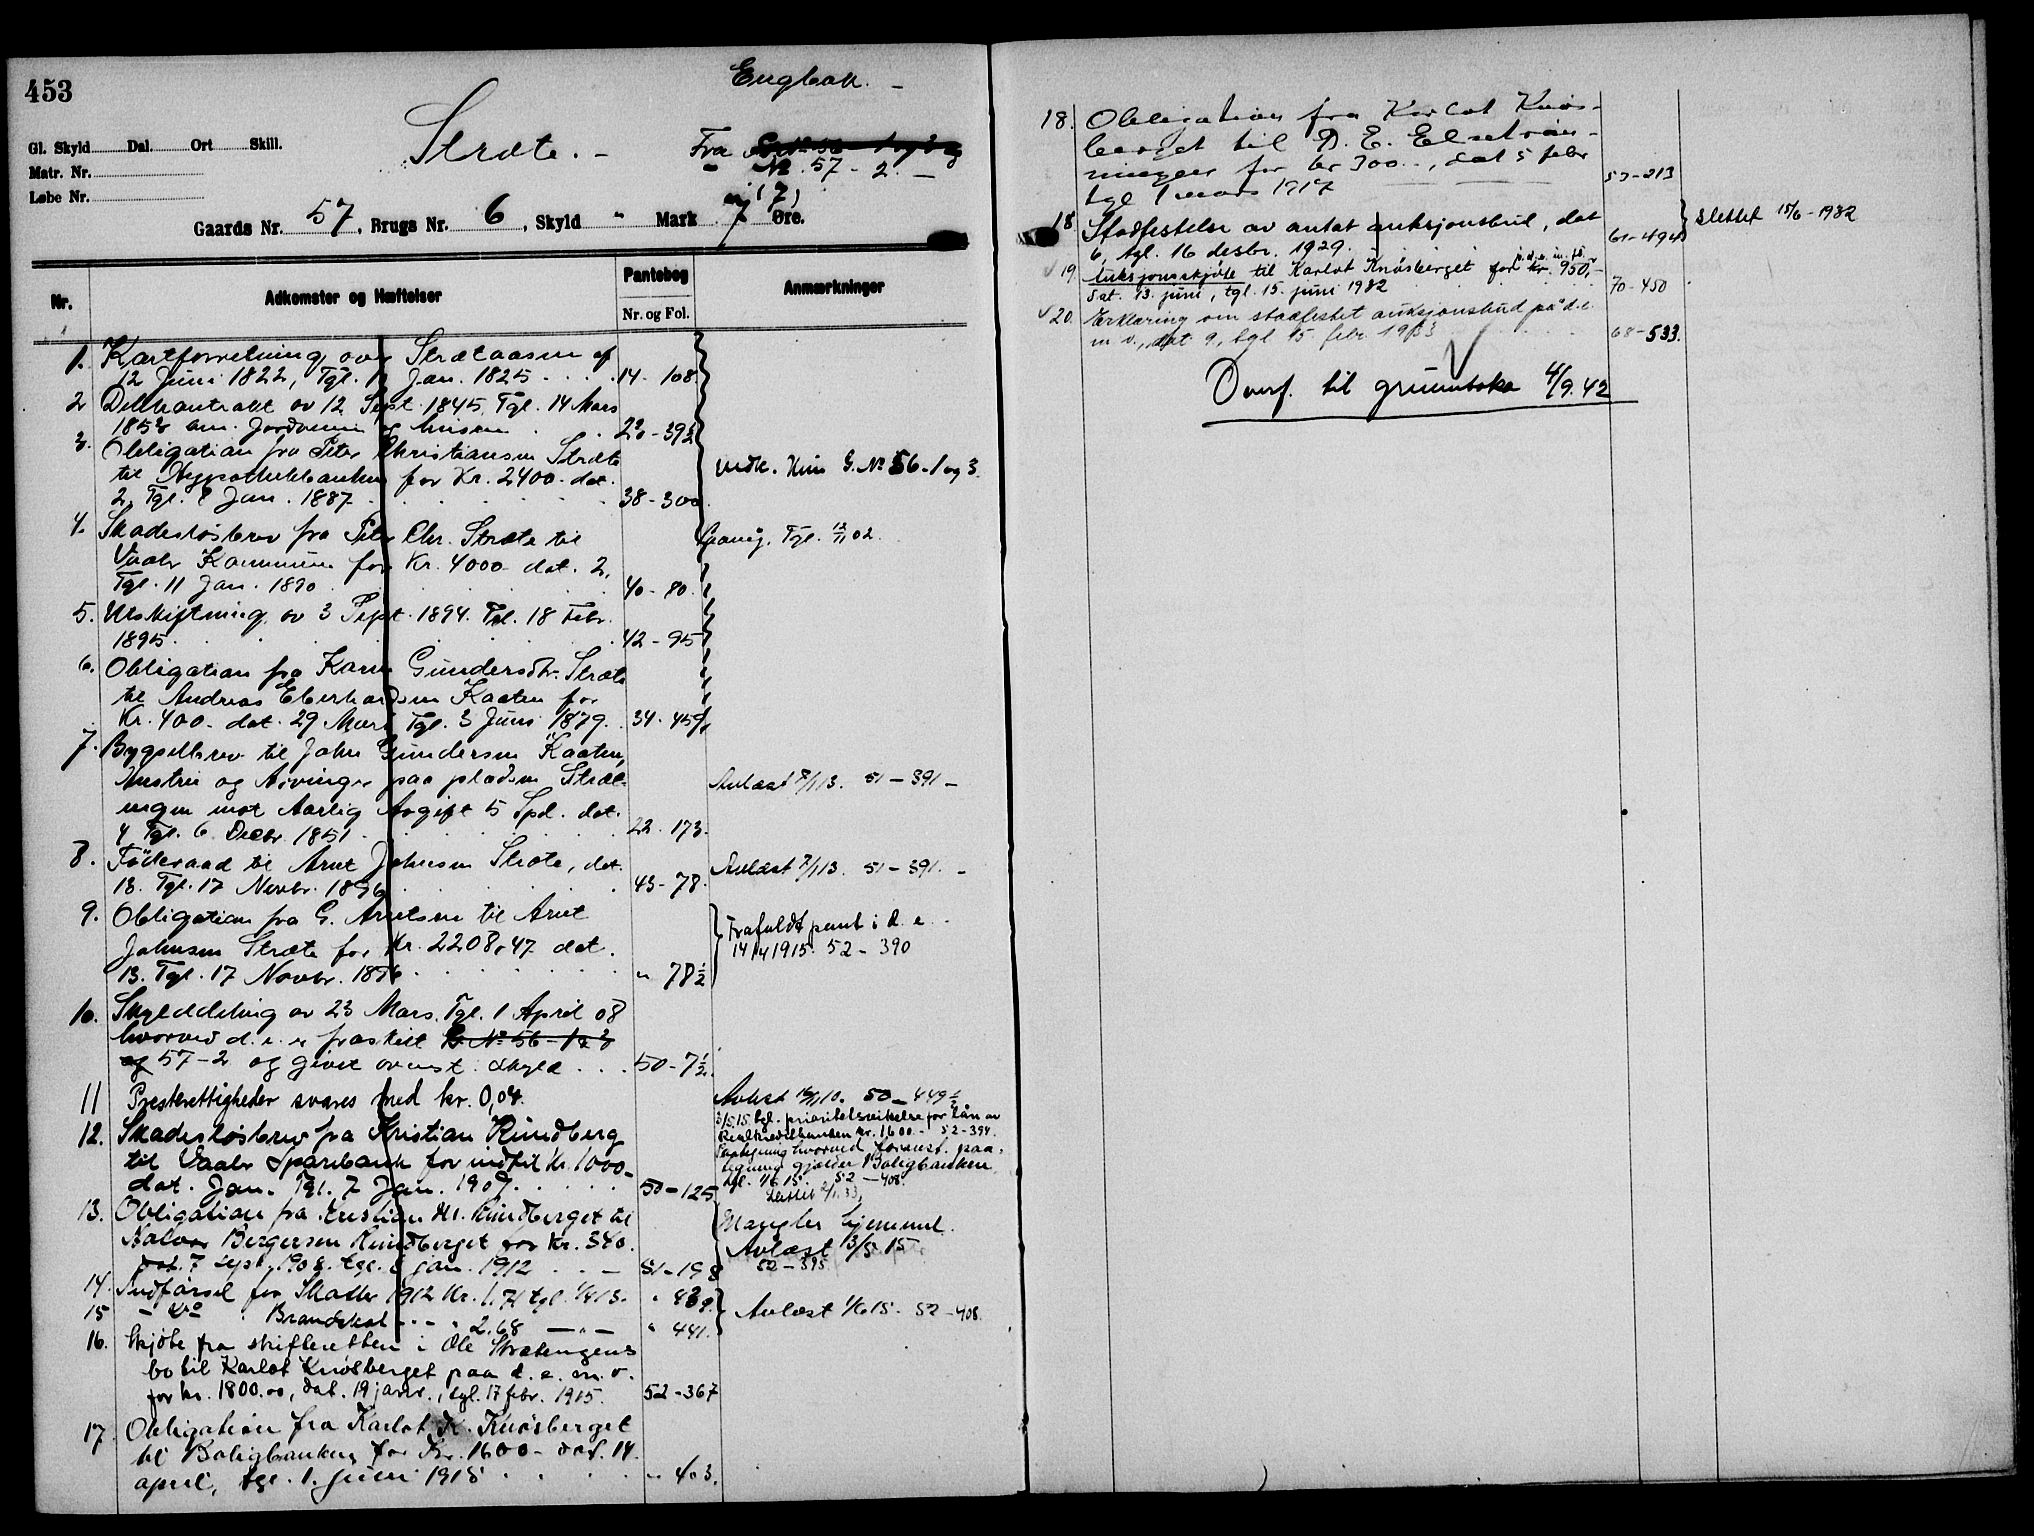 453
Engbak. -
Gl. Skyld Dal. Ort Skill.
Matr. Nr.
Løbe Nr.
Stræte. -
Fra
" No. 57 - 2. -
(7)
Gaards Nr. 57, Brugs Nr. 6, Skyld " Mark 7 Øre.
Nr. Adkomster og Hæftelser Pantebog Anmærkninger
Nr. og Fol.
1. Kartforretning over Strætaasen af
12 Juni 1822, Tgl. Jan. 1825 14 - 108
2 Delekontrakt av 12 Sept. 1845, Tgl. 14 Mars
1853 om Jordveien og husene 23 - 39½
3. Obligation fra Peter Christiansen Stræte
til Hypothekbanken for Kr. 2400 - dat.
2, Tgl. 8 Jan. 1887 38 - 300
vedk. Kun G. No 56 - 1 og 3.
4. Skadesløsbrev fra Peter Chr. Stræte til
Vaaler Kommune for Kr. 4000 dat. 2,
Tgl. 11 Jan. 1890 40 - 80.
Tgl. 12/11 02.
5. Utskiftning av 3 Sept. 1894. Tgl. 18 Febr.
1895. 42 - 95
6. Obligation fra Karen Gundersdtr. Stræte
til Andreas Eberhardsen Kaaten for
Kr. 400 - dat. 29 Mars Tgl. 3 Juni 1879. 34 - 459
7. Bygselbrev til John Gundersen Kaaten,
Hustru og Arvinger paa pladsen Stræt-
engen mot Aarlig Avgift 5 Spd. dat.
4 Tgl. 6 Decbr. 1851 22 - 173.
Avlæst 7/1 13. 51 - 391 -
8. Føderaad til Arnt Johnsen Stræte, dat.
13. Tgl. 17 Novbr. 1896 43 - 78.
Avlæst 7/1 13. 51 - 391. -
9. Obligation fra G. Arntsen til Arnt
Johnsen Stræte for Kr. 2208,47 dat.
13. Tgl. 17 Novbr. 1896 " 78½
Frafaldt pant i d. e.
14/4 1915. 52 - 390
10. Skylddeling av 23 Mars. Tgl. 1 April 08
hvorved d. e. er fraskilt G. No 56 - 1 & 3
og 57 - 2 og givet ovenst. skyld 50 - 7½
11 Presterettigheder svares med kr. 0,04.
12. Skadesløsbrev fra Kristian Kundberg
til Vaaler Sparebank for indtil Kr. 1000 -
dat. Jan. Tgl. 7 Jan. 1909. 50 - 125
Avlæst 10. 50 - 449½
3/5 15 tgl. prioritetsvikelse for Lån av
Realkreditbanken kr. 1600. - 52 - 394.
Paategning hvorved foranst. paa-
tegning gjælder Boligbanken
tgl. 1/6 15. 52 - 408.
13. Obligation fra Kristian Kundberget til
Halvor Bergersen Kundberget for Kr. 340.
dat. 7 sept. 1908. tgl. 8 jan. 1912 51 - 198
Mangler hjemmel.
Avlæst 3/5 15
52 - 395
14. Indførsel for Skatter 1912 Kr. 1.71 tgl. 1/4 13. " 439.
15 - do Brandskat - - " 2.68 - " - " 441.
Avlæst 1/6 15. 52 - 408.
16. Skjøte fra skifteretten i Ole Strætengens
bo til Karlot Knøsberget paa d. e. m. v.
for kr. 1800.00, dat. 19 janr., tgl. 17 febr. 1915. 52 - 367
17. Obligation fra Karlot K. Knøsberget
til Boligbanken for Kr. 1600 - dat. 14
april, tgl. 1. juni 1915 " 403.
18. Obligation fra Karlot Knøs-
berget til D. E.
for kr 300 -, dat 5 febr
tgl 1 mars 1917 53 - 213
18 Stadfestelse av antat auksjonsbud, dat
6, tgl. 16 desbr. 1929. 61 - 494
slettet 15/6 - 1932
19. Auksjonsskjøte til Karlot Knøsberget p. d. e. m. fl. for kr. 950,-
dat. 13. juni, tgl. 15. juni 1932 70 - 450
20. Erklæring om stadfestet auksjonsbud på d. e.
m v., dat 9, tgl 15. febr. 1933 68 - 533.
Overf. til grunnboka 4/9.42